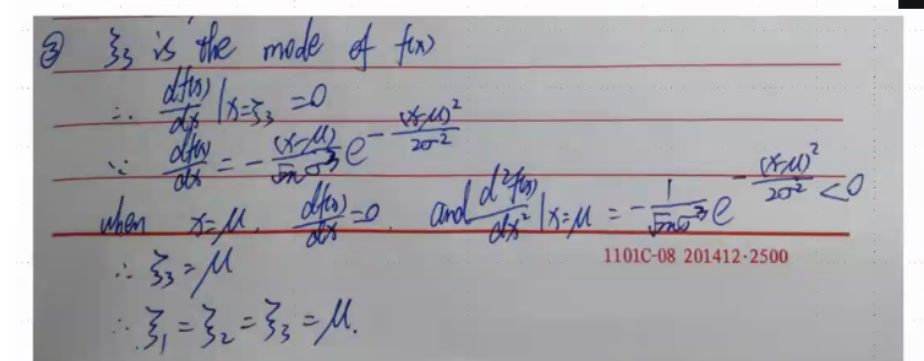 ③ ξ₃ is the mode of f(x)
∴ df(x)/dx |x=ξ₃ = 0
∵ df(x)/dx = - (x-μ)/(√2π σ³) e^(-(x-μ)²/(2σ²))
when x=μ, df(x)/dx = 0, and d²f(x)/dx² |x=μ = - 1/(√2π σ³) e^(-(x-μ)²/(2σ²)) < 0
1101C-08 201412·2500
∴ ξ₃ = μ
∴ ξ₁ = ξ₂ = ξ₃ = μ.